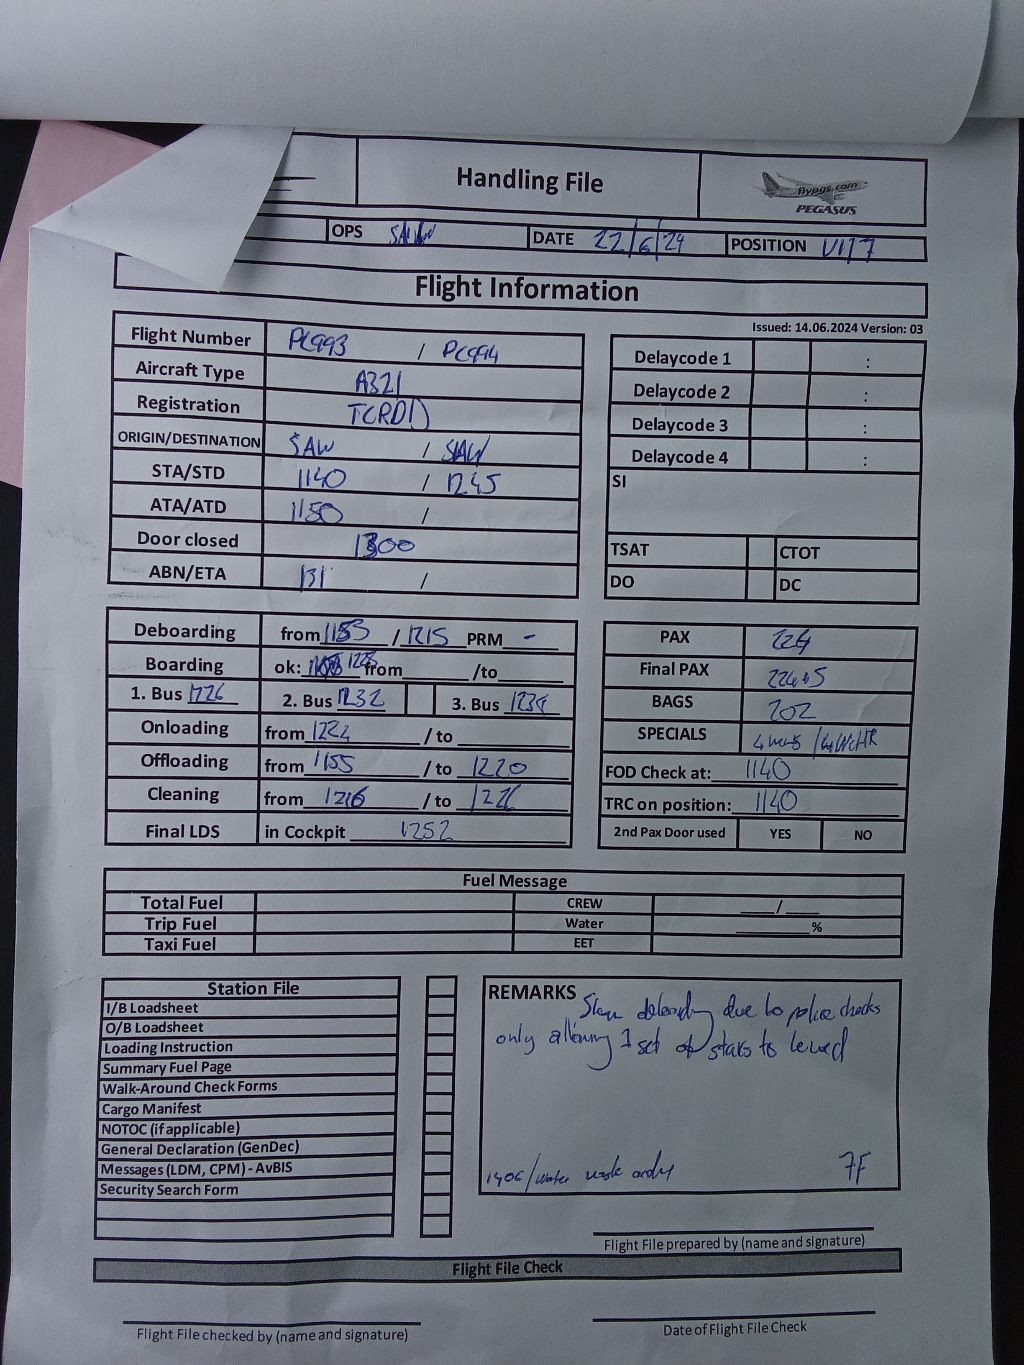 Handling File
flypgs.com
PEGASUS
OPS SAW DATE 22/6/24 POSITION V117
Flight Information
Issued: 14.06.2024 Version: 03
Flight Number PC993 / PC994
Aircraft Type A321
Registration TCRDD
ORIGIN/DESTINATION SAW / SAW
STA/STD 1140 / 1245
ATA/ATD 1150 /
Door closed 1300
ABN/ETA 131 /
Delaycode 1 :
Delaycode 2 :
Delaycode 3 :
Delaycode 4 :
SI
TSAT CTOT
DO DC
Deboarding from 1155 / 1215 PRM -
Boarding ok: 1225 from /to
1. Bus 1226 2. Bus 1232 3. Bus
Onloading from 1224 / to
Offloading from 1155 / to 1220
Cleaning from 1216 / to 1226
Final LDS in Cockpit 1252
PAX 224
Final PAX 224+5
BAGS 202
SPECIALS
FOD Check at: 1140
TRC on position: 1140
2nd Pax Door used YES NO
Fuel Message
Total Fuel CREW /
Trip Fuel Water %
Taxi Fuel EET
Station File
I/B Loadsheet
O/B Loadsheet
Loading Instruction
Summary Fuel Page
Walk-Around Check Forms
Cargo Manifest
NOTOC (if applicable)
General Declaration (GenDec)
Messages (LDM, CPM) - AvBIS
Security Search Form
REMARKS
due to police checks
only allowing 1 set of stairs to
water waste only 7F
Flight File prepared by (name and signature)
Flight File Check
Flight File checked by (name and signature)
Date of Flight File Check